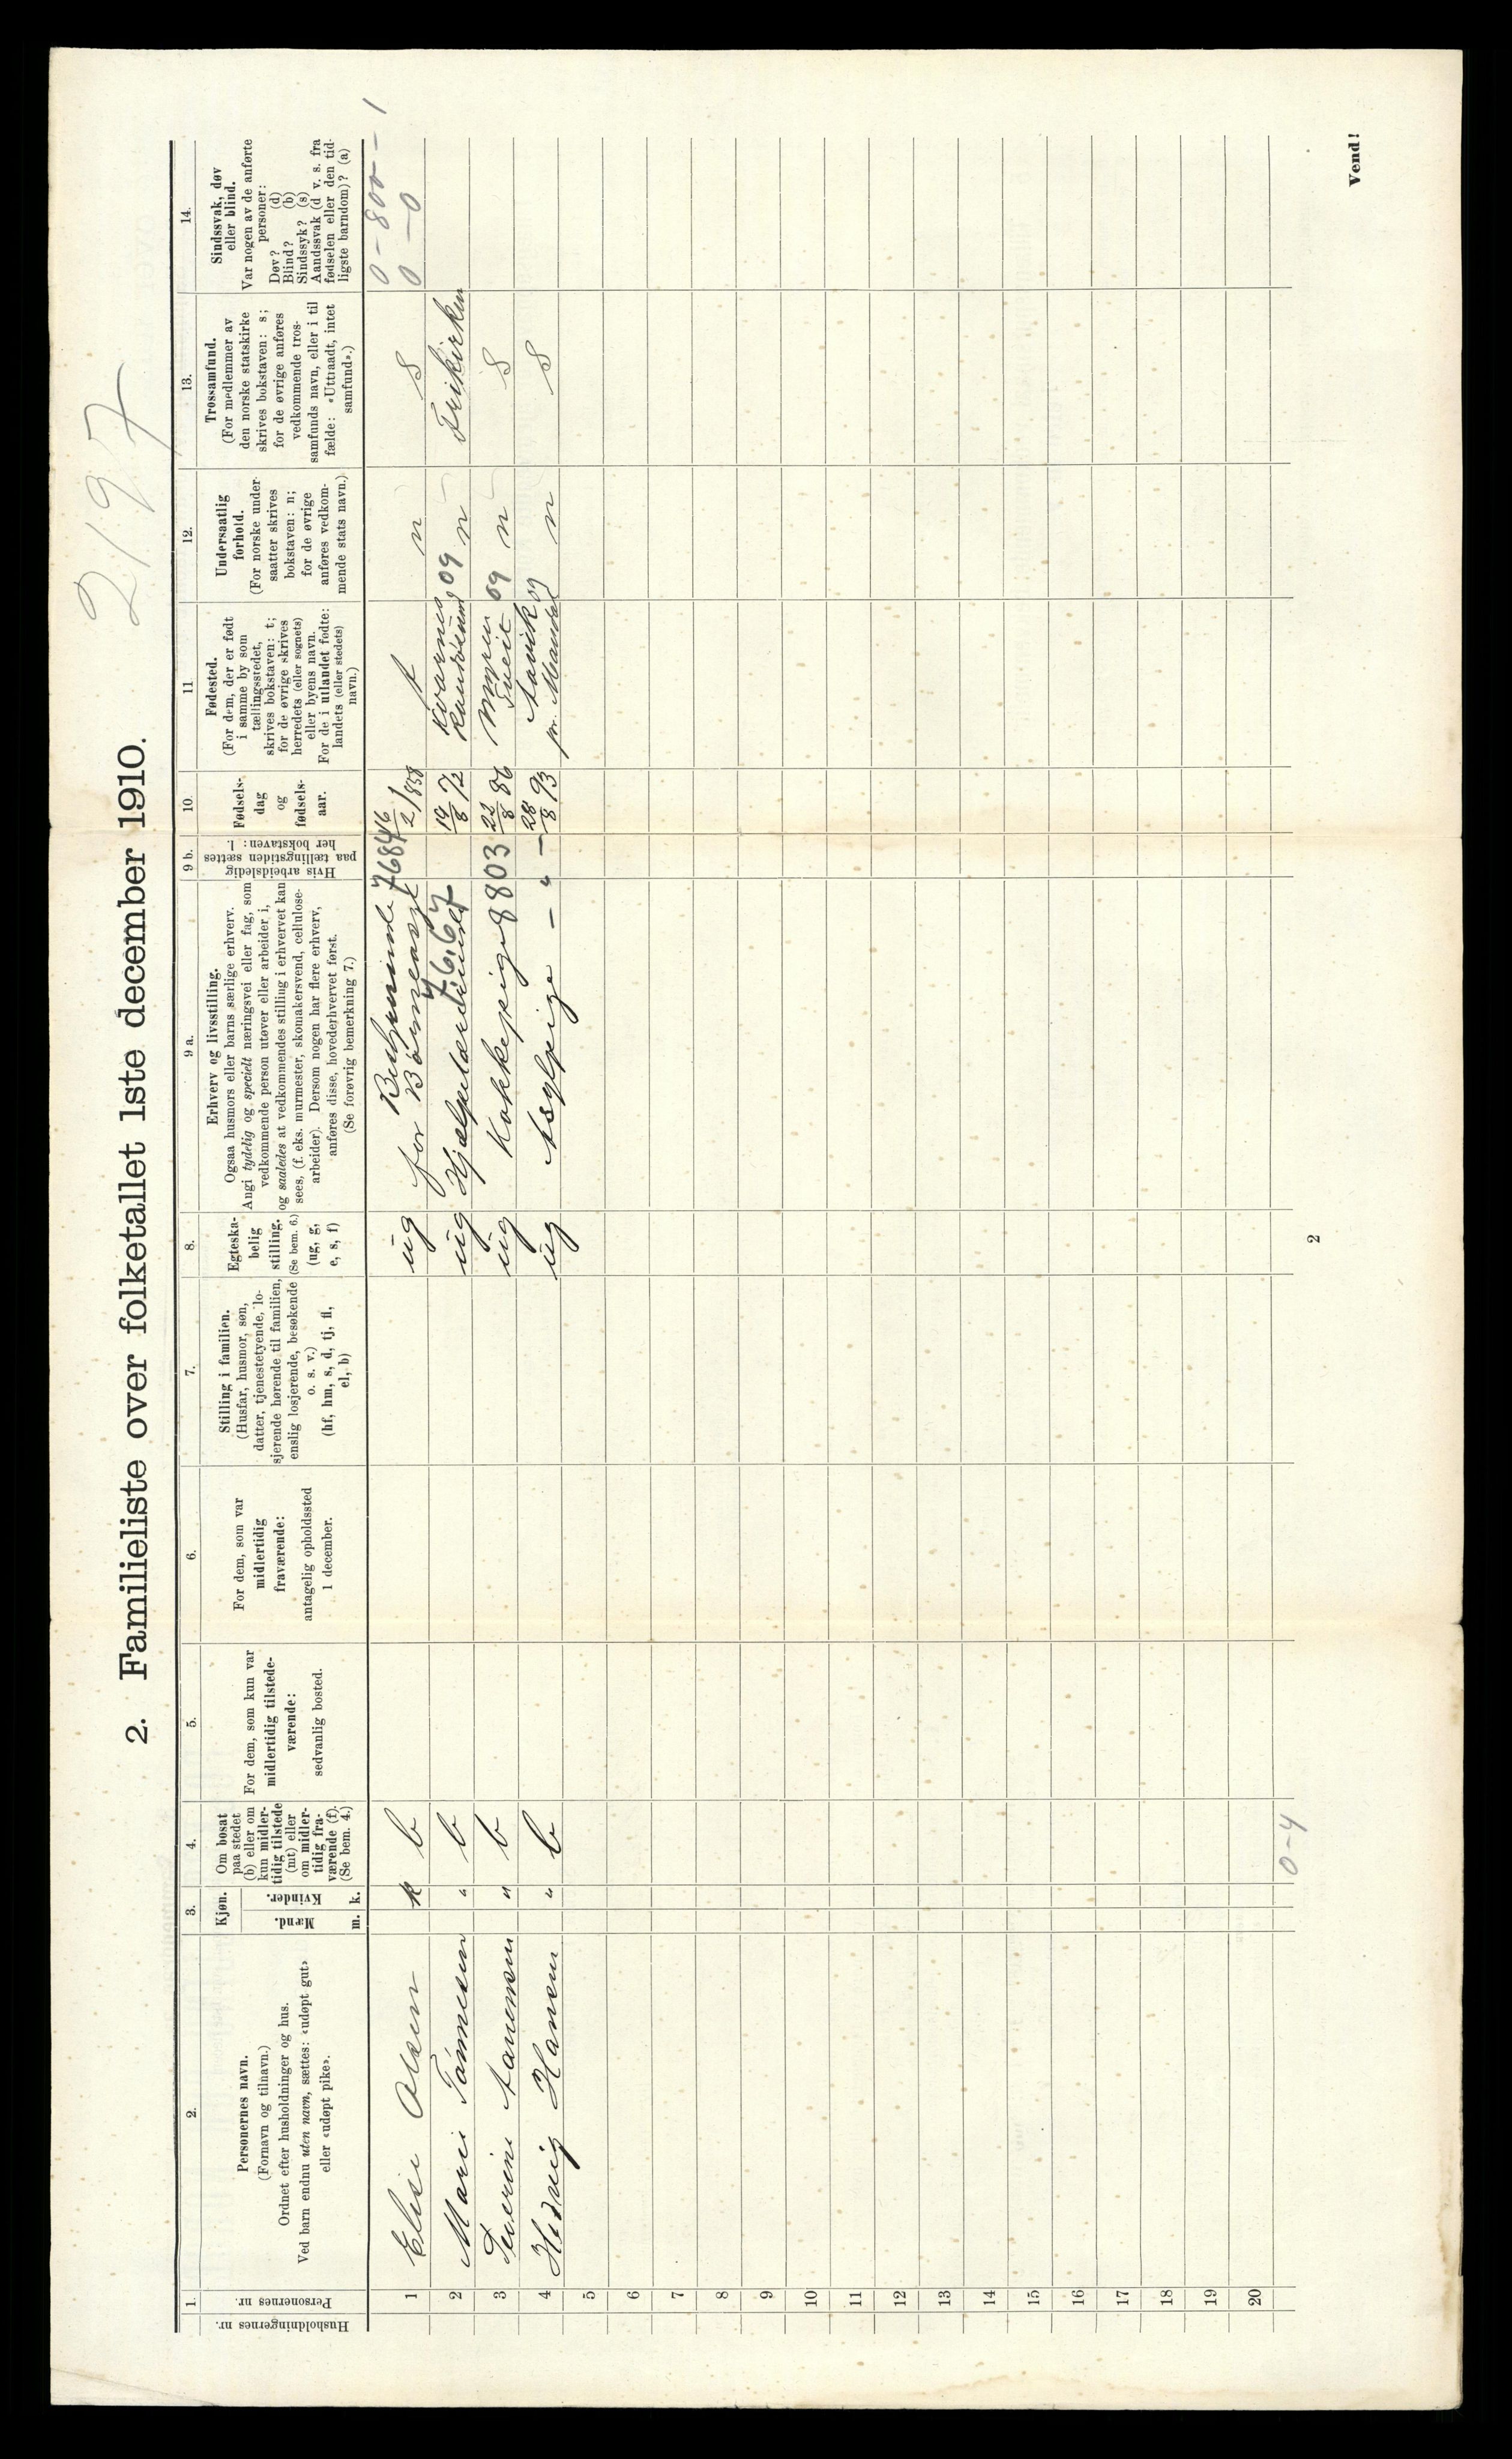 2197
2. Familieliste over folketallet 1ste december 1910.
Husholdningernes nr.
1.
Personernes nr.
2.
Personernes navn.
(Fornavn og tilnavn.)
Ordnet efter husholdninger og hus.
Ved barn endnu uten navn, sættes: «udøpt gut»
eller «udøpt pike».
3.
Kjøn.
Mænd.
Kvinder.
m.
k.
4.
Om bosat
paa stedet
(b) eller om
kun midler-
tidig tilstede
(mt) eller
om midler-
tidig fra-
værende (f).
(Se bem. 4.)
5.
For dem, som kun var
midlertidig tilstede-
værende:
sedvanlig bosted.
6.
For dem, som var
midlertidig
fraværende:
antagelig opholdssted
1 december.
7.
Stilling i familien.
(Husfar, husmor, søn,
datter, tjenestetyende, lo-
sjerende hørende til familien,
enslig losjerende, besøkende
o. s. v.)
(hf, hm, s, d, tj, fl,
el, b)
8.
Egteska-
belig
stilling.
(Se bem. 6.)
(ug, g,
e, s, f)
9 a.
Erhverv og livsstilling.
Ogsaa husmors eller barns særlige erhverv.
Angi tydelig og specielt næringsvei eller fag, som
vedkommende person utøver eller arbeider i,
og saaledes at vedkommendes stilling i erhvervet kan
sees, (f. eks. murmester, skomakersvend, cellulose-
arbeider). Dersom nogen har flere erhverv,
anføres disse, hovederhvervet først.
(Se forøvrig bemerkning 7.)
9 b.
Hvis arbeidsledig
paa tællingstiden sættes
her bokstaven: l.
10.
Fødsels-
dag
og
fødsels-
aar.
11
Fødested.
(For dem, der er født
i samme by som
tællingsstedet,
skrives bokstaven: t;
for de øvrige skrives
herredets (eller sognets)
eller byens navn.
For de i utlandet fødte:
landets (eller stedets)
navn.)
12.
Undersaatlig
forhold.
(For norske under-
saatter skrives
bokstaven: n;
for de øvrige
anføres vedkom-
mende stats navn.)
13.
Trossamfund.
(For medlemmer av
den norske statskirke
skrives bokstaven: s;
for de øvrige anføres
vedkommende tros-
samfunds navn, eller i til
fælde: «Uttraadt, intet
samfund».)
14.
Sindssvak, døv
eller blind.
Var nogen av de anførte
personer:
Døv? (d)
Blind? (b)
Sindssyk? (s)
Aandssvak (d. v. s. fra
fødselen eller den tid-
ligste barndom)? (a)
0-800--1
0 -0
1 Elise Olsen k b ug for Børneasyl 7684 16/2 1838 t n S
2 Marie Tønnesen " b ug 7667 19/8 72 09 n Frikirken
3 Severine Aanensen " b ug Kokkepige 8803 22/8 86 09 n S
4 Hedvig Hansen " b ug Asylpige - " - 28/8 93 pr. Mandal 09 n S
5
6
7
8
9
10
11
12
13
14
15
16
17
18
19
20
0-4
2
Vend!